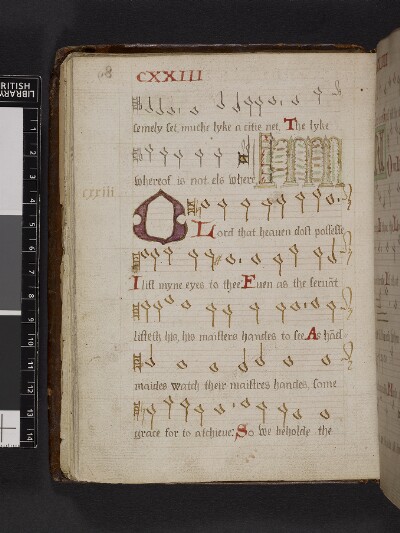 CXXIII
semely set, muche lyke a citie net, The lyke
whereof is not els where
cxxiii.
O Lord that heauen dost possesse
I lift myne eyes to thee Euen as the seruãt
lifteth his, his maisters handes to see As hãd-
maides watch their maistres handes, some
grace for to atchieue: So we beholde the
BRITISH
LIBRARY
1
2
3
4
5
6
7
8
9
10
11
12
13
14